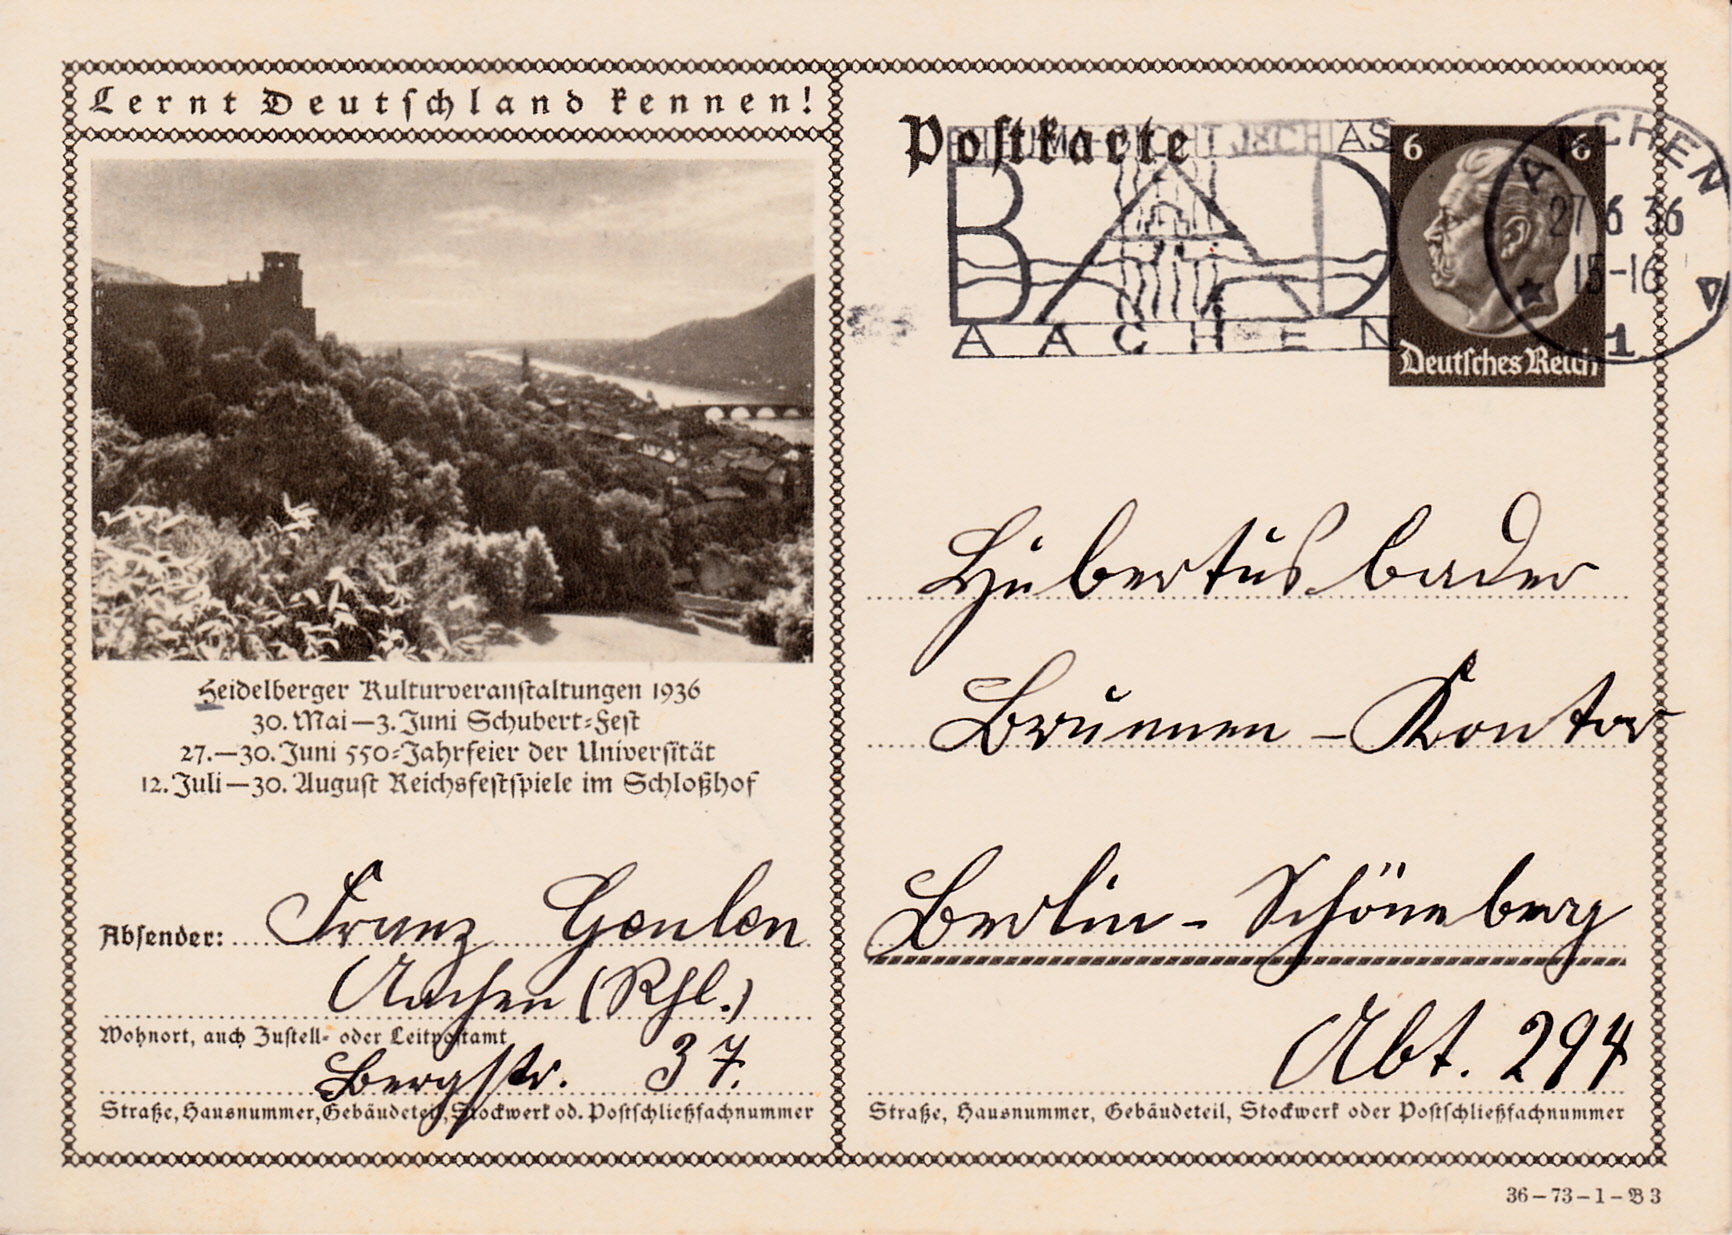 Lernt Deutschland kennen!
Heidelberger Kulturveranstaltungen 1936
30. Mai—3. Juni Schubert=Fest
27.—30. Juni 550=Jahrfeier der Universität
12. Juli—30. August Reichsfestspiele im Schloßhof
Absender: Franz Geulen
Aachen (Rhl.)
Wohnort, auch Zustell= oder Leitpostamt
Bergstr. 37.
Straße, Hausnummer, Gebäudeteil, Stockwerk od. Postschließfachnummer
Postkarte
BAD
AACHEN
6 6
Deutsches Reich
AACHEN
27 6 36
15-16
1
Hubertusbader
Brunnen - Kontor
Berlin - Schöneberg
Abt. 294
Straße, Hausnummer, Gebäudeteil, Stockwerk oder Postschließfachnummer
36-73-1-B3